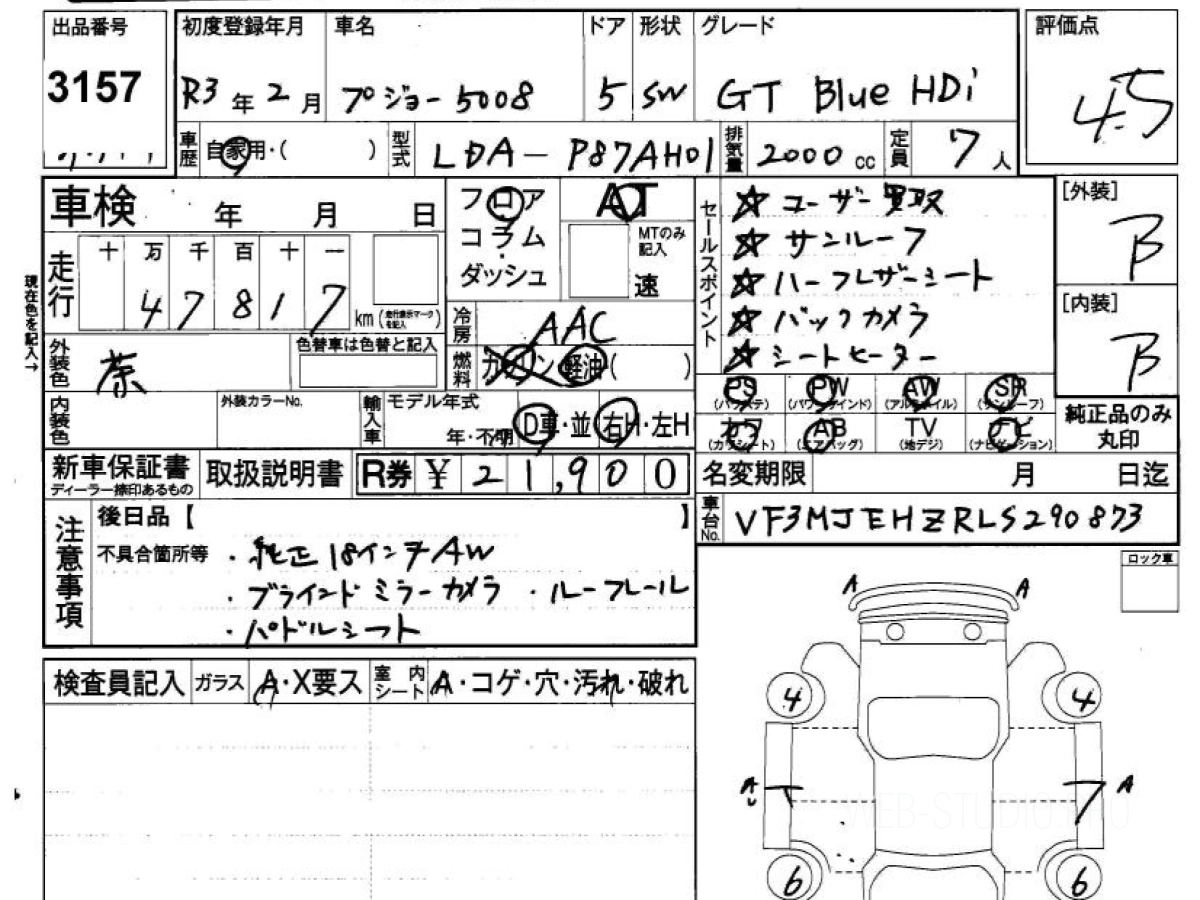 出品番号 初度登録年月 車名 ドア 形状 グレード 評価点
3157 R3年2月 プジョー5008 5 SW GT Blue HDi 4.5
車歴 自家用・( ) 型式 LDA-P87AH01 排気量 2000cc 定員 7人
車検 年 月 日
走行 十 万 千 百 十 一
4 7 8 1 7 km (走行表示マークを記入)
現在色を記入→
フロア
コラム
ダッシュ
AT
MTのみ記入
速
冷房 AAC
燃料 ガソリン 軽油( )
セールスポイント
☆ユーザー買取
☆サンルーフ
☆ハーフレザーシート
☆バックカメラ
☆シートヒーター
[外装]
B
[内装]
B
外装色 茶 色替車は色替と記入
内装色 外装カラーNo. 輸入車 モデル年式
年・不明 D車・並 右H・左H
PS PW AW SR
(パワステ) (パワーウインド) (アルミホイル) (サンルーフ)
カワ AB TV ナビ
(カワシート) (エアバッグ) (地デジ) (ナビゲーション)
純正品のみ
丸印
新車保証書
ディーラー捺印あるもの
取扱説明書 R券 ¥ 21,900
名変期限 月 日迄
車台No. VF3MJEHZRLS290873
注意事項
後日品【 】
不具合箇所等 ・純正18インチAW
・ブラインドミラーカメラ ・ルーフレール
・パドルシフト
ロック車
検査員記入 ガラス A・X要ス 室内シート A・コゲ・穴・汚れ・破れ
A A
4 4
A A
6 6
WEB-STUDIO.PRO